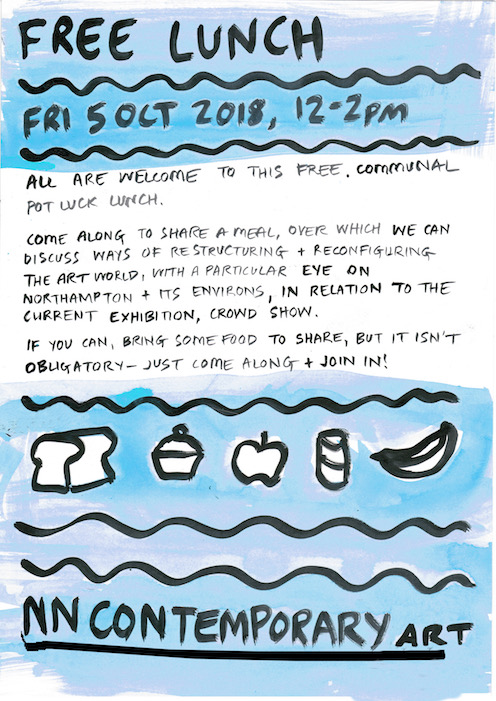 FREE LUNCH
FRI 5 OCT 2018, 12-2PM
ALL ARE WELCOME TO THIS FREE, COMMUNAL
POT LUCK LUNCH.
COME ALONG TO SHARE A MEAL, OVER WHICH WE CAN
DISCUSS WAYS OF RESTRUCTURING + RECONFIGURING
THE ART WORLD, WITH A PARTICULAR EYE ON
NORTHAMPTON + ITS ENVIRONS, IN RELATION TO THE
CURRENT EXHIBITION, CROWD SHOW.
IF YOU CAN, BRING SOME FOOD TO SHARE, BUT IT ISN'T
OBLIGATORY – JUST COME ALONG + JOIN IN!
NN CONTEMPORARY ART